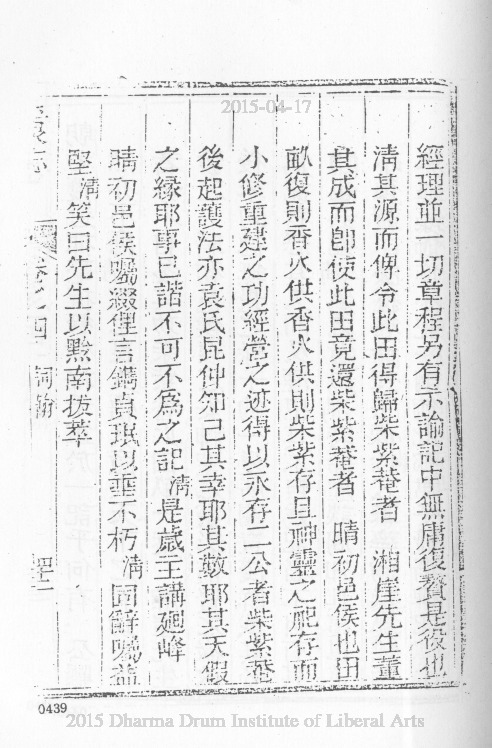 2015-04-17
經理並一切章程另有示諭記中無庸復贅是役也
清其源而俾令此田得歸柴紫菴者 湘崖先生董
其成而卽使此田竟還柴紫菴者 晴初邑侯也田
畝復則香火供香火供則柴紫存且神靈之祀存而
小修重建之功經營之迹得以永存二公者柴紫菴
後起護法亦袁氏昆仲知己其幸耶其數耶其天假
之緣耶事已諧不可不爲之記清是歲主講廻峰
晴初邑侯囑綴俚言鐫貞珉以垂不朽清固辭囑益
堅清笑曰先生以黔南拔萃
卷之四 詞翰
0439
2015 Dharma Drum Institute of Liberal Arts